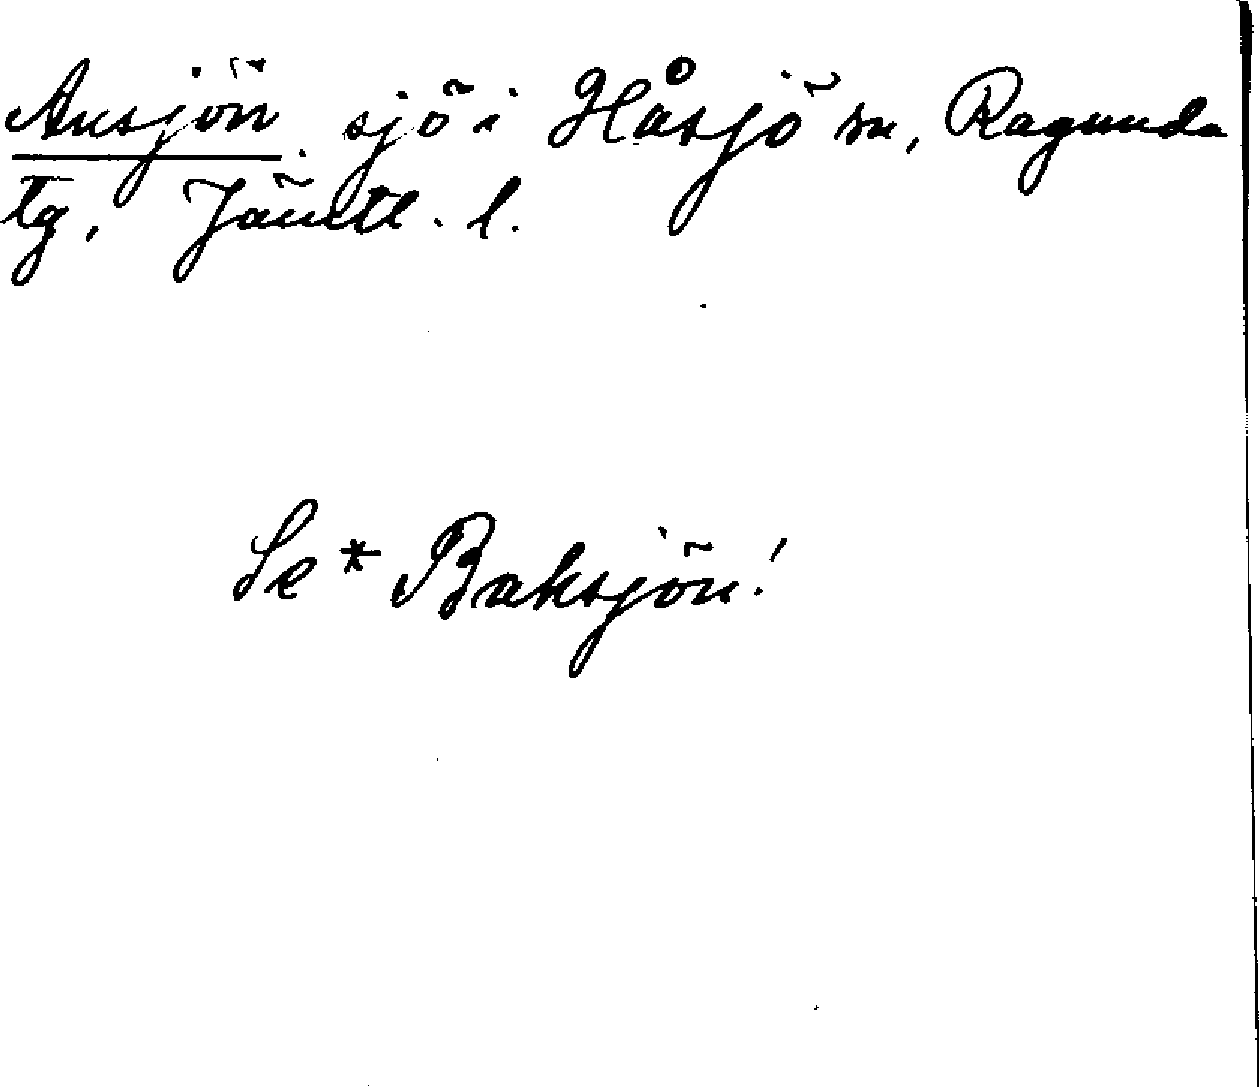 Ansjön. sjö i Håsjö sn, Ragunda
tg, Jämtl. l.
Se * Baksjön!